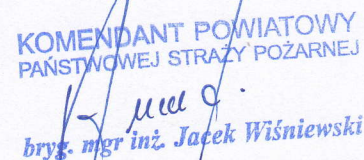 KOMENDANT POWIATOWY
PAŃSTWOWEJ STRAŻY POŻARNEJ
bryg. mgr inż. Jacek Wiśniewski